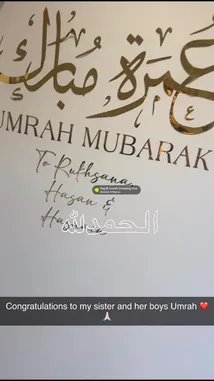 عمرة مبارك
UMRAH MUBARAK
To Rukhsana,
Hasan &
الحمدلله
Congratulations to my sister and her boys Umrah ❤️
🙏🏻